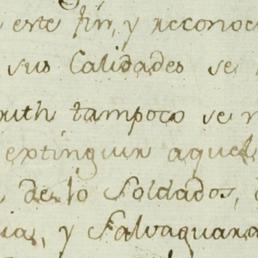 este fin, y reconoc
sus Calidades se
tampoco se
extinguir aquel
de lo Soldados,
y Salvaguard